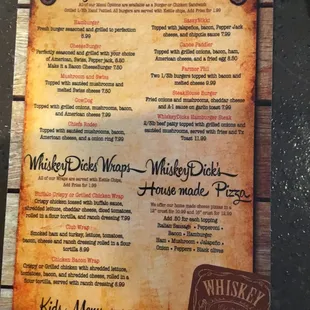 All of our Main Options are available as a Burger or Chicken Sandwich
Grilled 1/3lb Hand Patties. All burgers are served with Kettle chips, Add Fries for 1.99
Hamburger
Fresh burger seasoned and grilled to perfection
6.99
CheeseBurger
Perfectly seasoned and grilled with your choice
of American, Swiss, Pepper jack, or
Make it a Bacon CheeseBurger 7.50
Mushroom and Swiss
Topped with sautéed mushrooms and
melted Swiss cheese 7.50
CowDog
Topped with grilled onions, mushrooms, bacon,
and American cheese 7.99
Chiefs Rodeo
Topped with sautéed mushrooms, bacon,
American cheese, and a onion ring
7.99
WhiskeyDicks Wraps
All of our Wraps are served with Kettle Chips,
Add Fries for 1.99
Buffalo Crispy or Grilled Chicken Wrap
Crispy chicken tossed with buffalo sauce,
shredded lettuce, cheddar cheese, diced tomatoes,
rolled in a flour tortilla, and ranch dressing 7.99
Club Wrap
Smoked ham and turkey, lettuce, tomatoes,
bacon, cheese and ranch dressing rolled in a flour
tortilla 8.99
Chicken Bacon Wrap
Crispy or Grilled chicken with shredded lettuce,
tomatoes, bacon, and shredded cheese, rolled in a
flour tortilla, served with ranch dressing 8.99
Kids Menu
Topped with jalapeño, bacon, Pepper Jack
cheese, and chipotle sauce 7.99
Topped with grilled onions, bacon, ham,
American cheese, and a fried egg 8.50
Two 1/3lb burgers topped with bacon and
melted cheese 9.99
SteakHouse Burger
Fried onions and mushrooms, cheddar cheese
and A-1 sauce on garlic toast 7.99
WhiskeyDicks Hamburger Steak
1/2lb beef patty topped with grilled onions, and
sautéed mushrooms, served with fries and Tx
Toast 11.99
WhiskeyDick's
House made Pizza
We offer our home made cheese pizzas in a
Add .50 for each topping
Italian Sausage • Pepperoni
Bacon • Hamburger
Ham • Mushroom • Jalapeño
Onion • Peppers • Black olives
WHISKEY